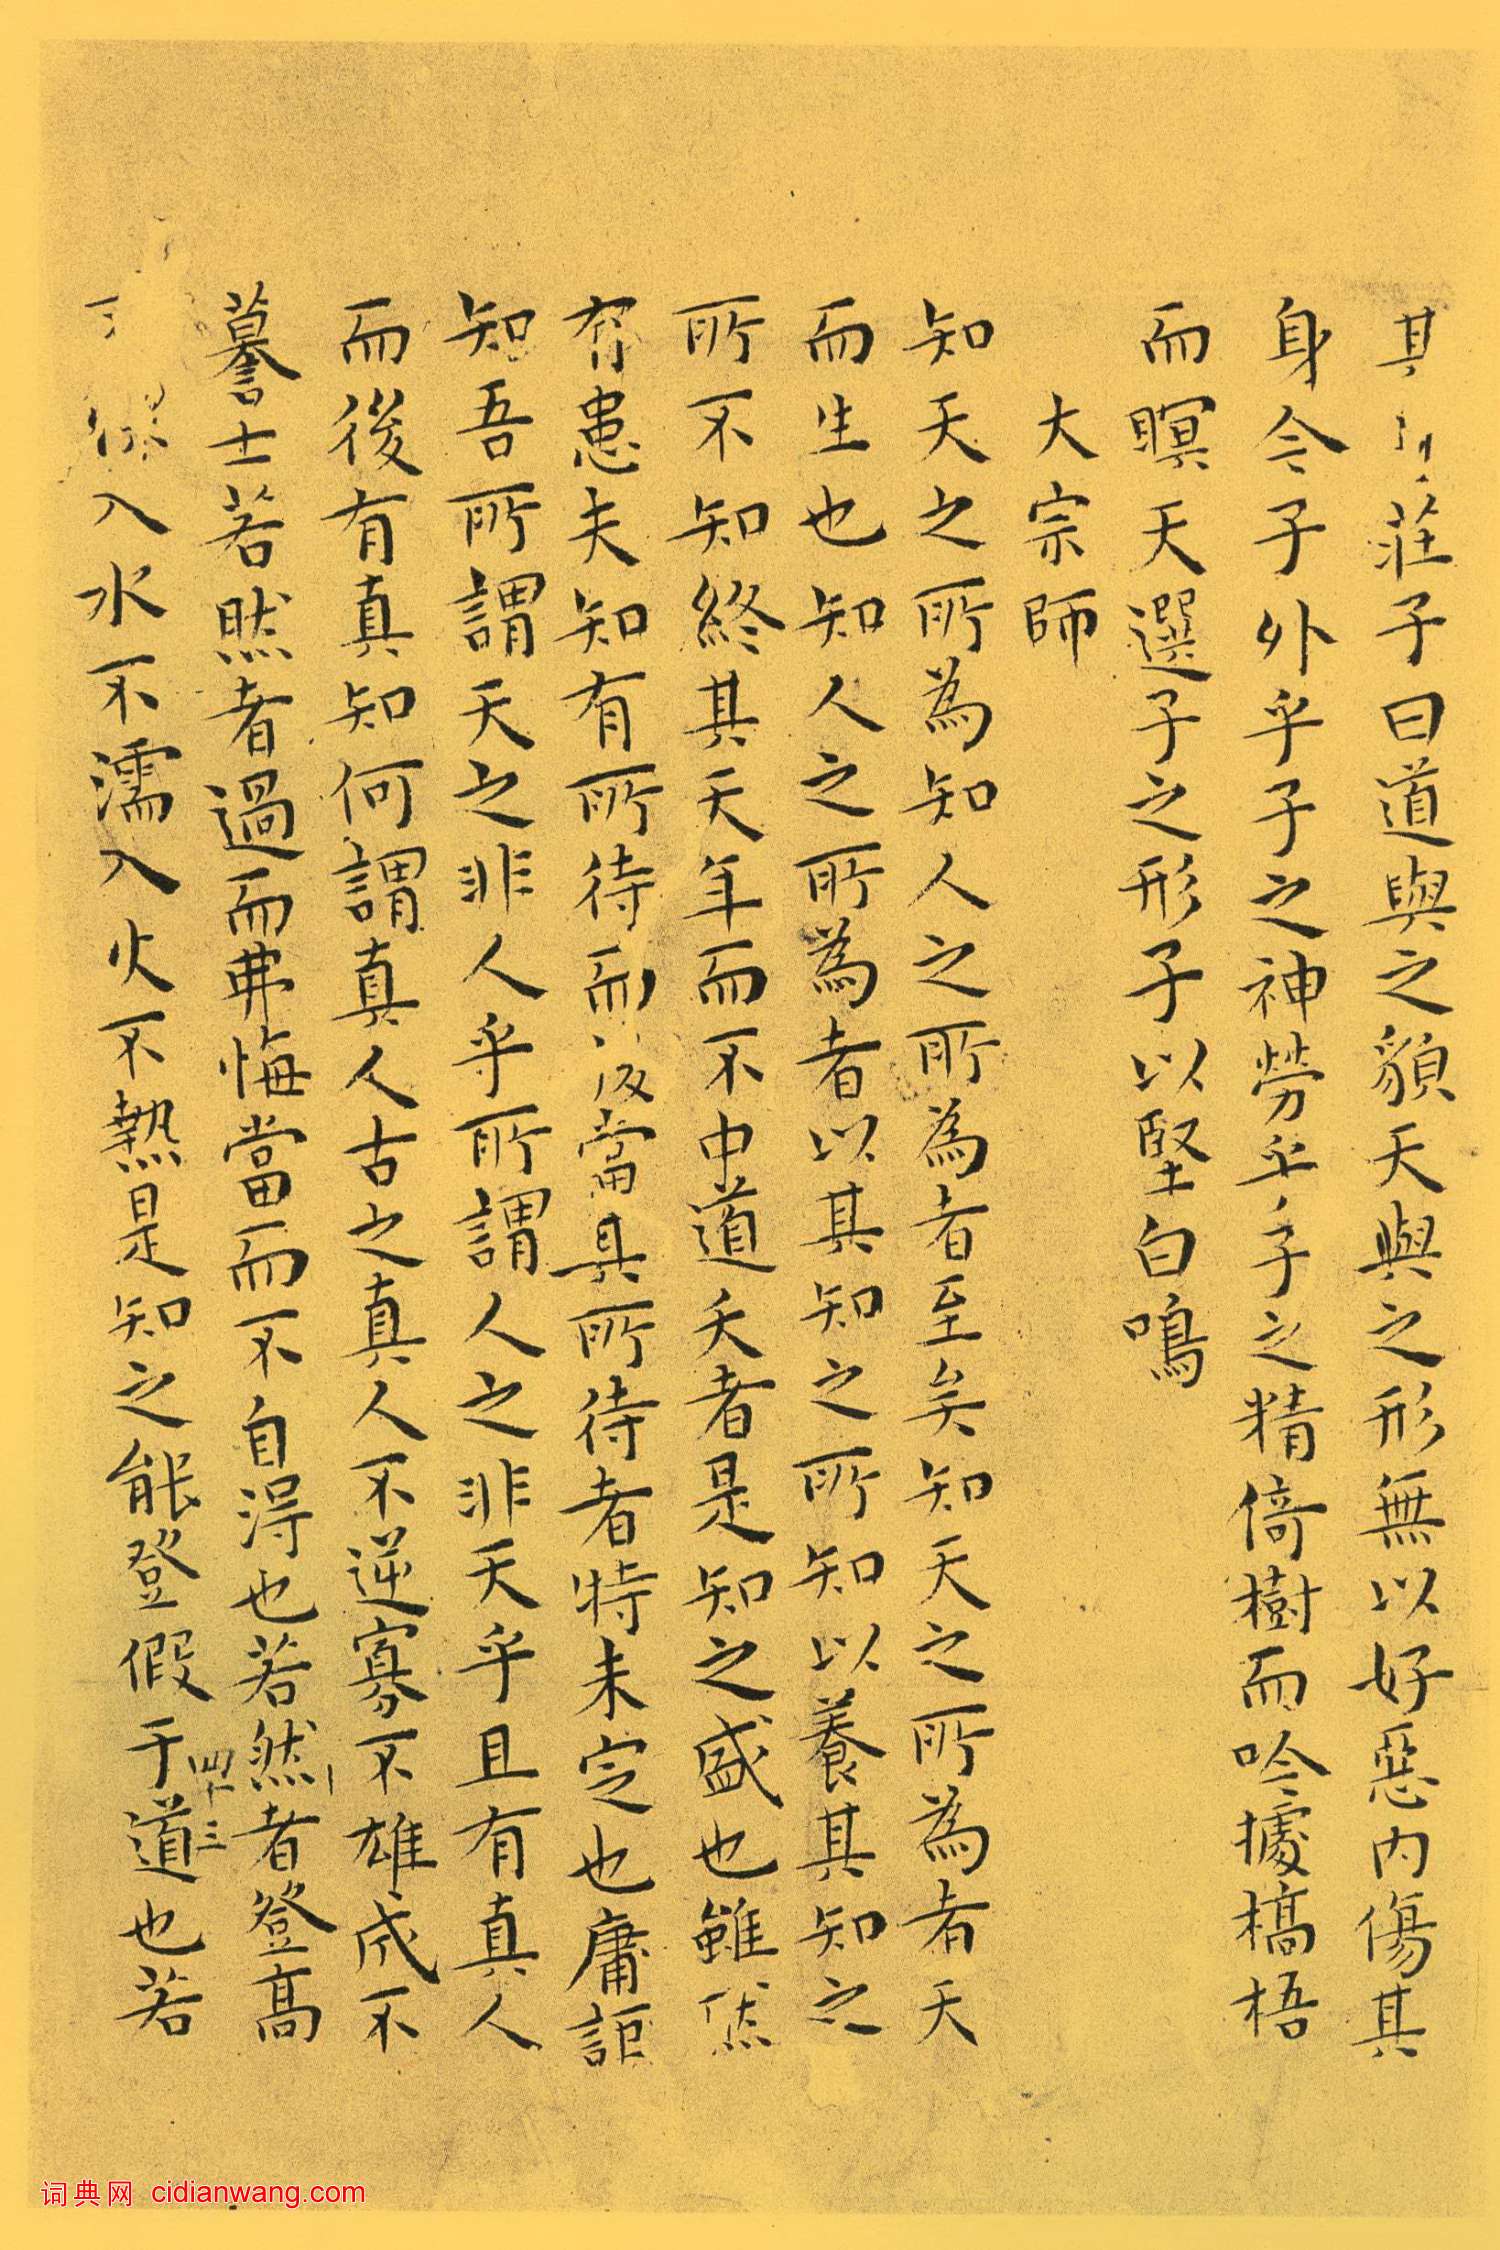 其莊子曰道與之貌天與之形無以好惡內傷其
身今子外乎子之神勞乎子之精倚樹而吟據槁梧
而瞑天選子之形子以堅白鳴
大宗師
知天之所為知人之所為者至矣知天之所為者天
而生也知人之所為者以其知之所知以養其知之
所不知終其天年而不中道夭者是知之盛也雖然
有患夫知有所待而後當其所待者特未定也庸詎
知吾所謂天之非人乎所謂人之非天乎且有真人
而後有真知何謂真人古之真人不逆寡不雄成不
謩士若然者過而弗悔當而不自得也若然者登高
四十三
入水不濡入火不熱是知之能登假于道也若
词典网 cidianwang.com